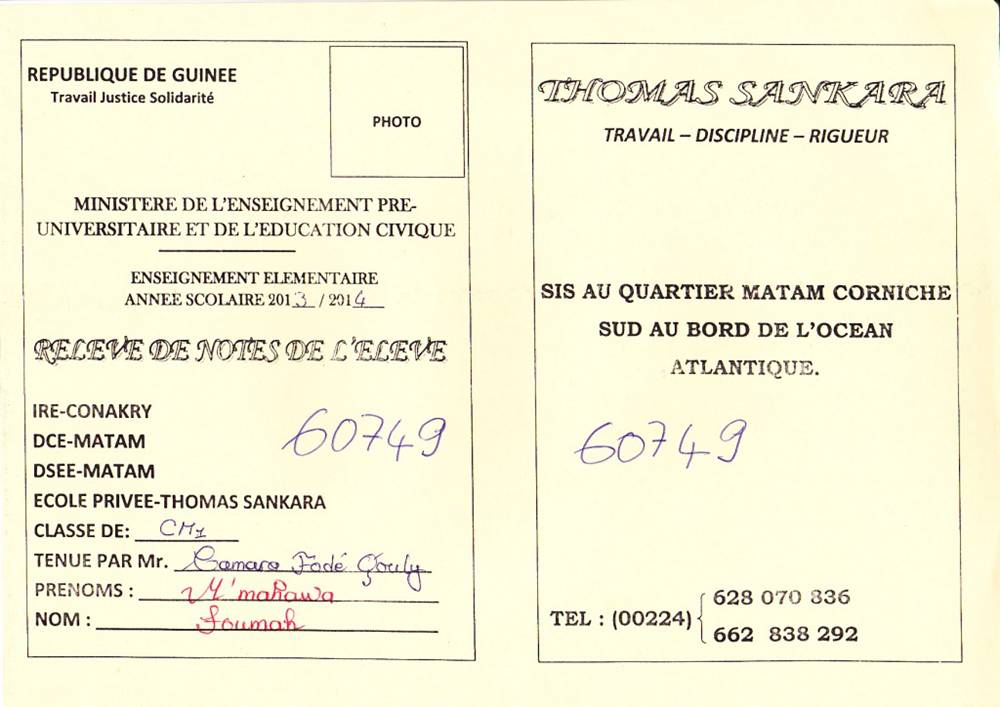 REPUBLIQUE DE GUINEE
Travail Justice Solidarité
PHOTO
MINISTERE DE L'ENSEIGNEMENT PRE-
UNIVERSITAIRE ET DE L'EDUCATION CIVIQUE
ENSEIGNEMENT ELEMENTAIRE
ANNEE SCOLAIRE 2013 / 2014
RELEVE DE NOTES DE L'ELEVE
IRE-CONAKRY
60749
DCE-MATAM
DSEE-MATAM
ECOLE PRIVEE-THOMAS SANKARA
CLASSE DE: CM1
TENUE PAR Mr. Camara Fodé
PRENOMS : M'mahawa
NOM : Soumah
THOMAS SANKARA
TRAVAIL – DISCIPLINE – RIGUEUR
SIS AU QUARTIER MATAM CORNICHE
SUD AU BORD DE L'OCEAN
ATLANTIQUE.
60749
TEL : (00224) 628 070 836
662 838 292